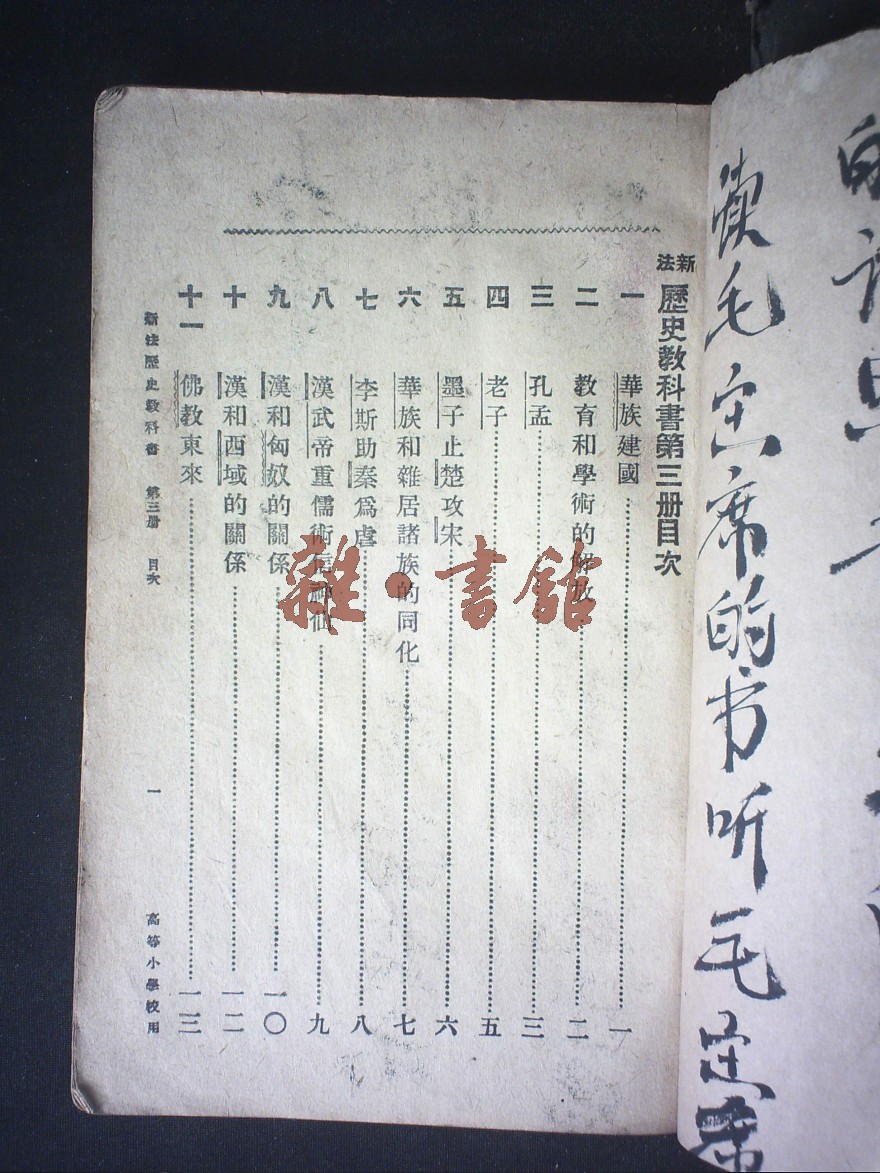 的
读毛主席的书听毛主席
新法歷史教科書第三册目次
一 華族建國 一
二 教育和學術的解放 二
三 孔孟 三
四 老子 五
五 墨子止楚攻宋 六
六 華族和雜居諸族的同化 七
七 李斯助秦爲虐 八
八 漢武帝重儒術信神仙 九
九 漢和匈奴的關係 一〇
十 漢和西域的關係 一二
十一 佛教東來 一三
新法歷史教科書 第三册 目次 一 高等小學校用
雜·書館